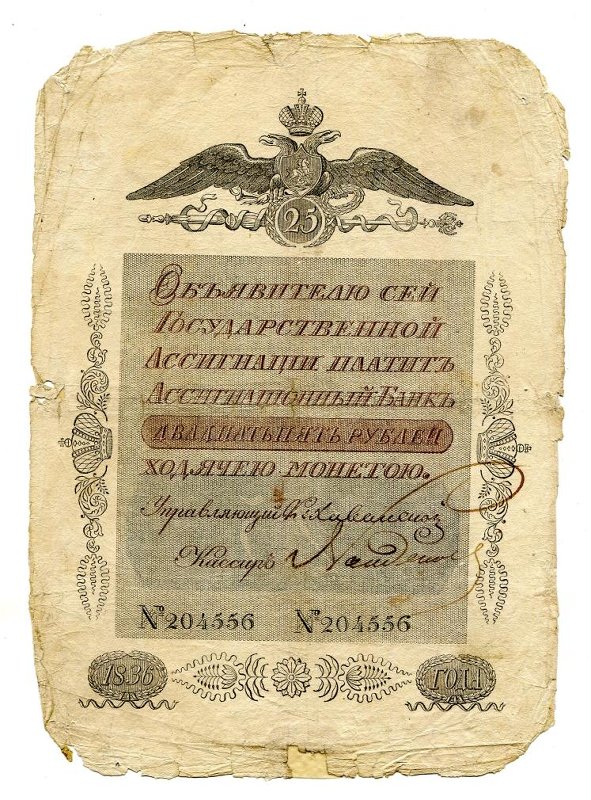 25
Объявителю сей
Государственной
Ассигнации платитъ
Ассигнационный Банкъ
двадцать пять рублей
ходячею монетою.
Управляющий
Кассиръ
№ 204556 № 204556
1836 года